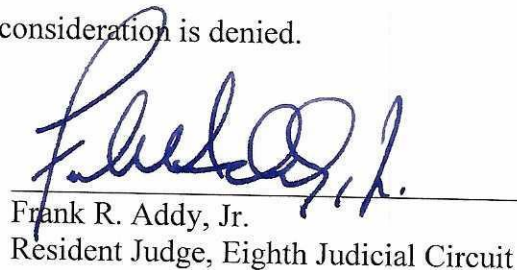 consideration is denied.
Frank R. Addy, Jr.
Resident Judge, Eighth Judicial Circuit